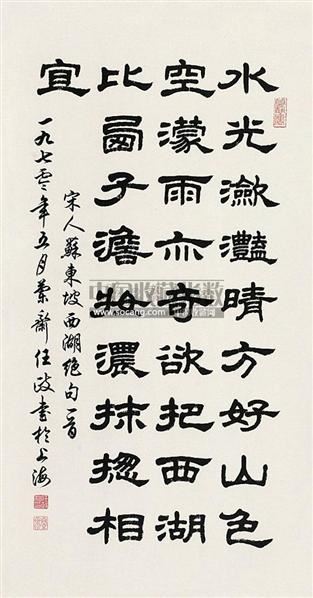 水光瀲灩晴方好山色
空濛雨亦奇欲把西湖
比卥子澹妝濃抹揔相
宜
宋人蘇東坡西湖絕句一首
一九七零年五月蘭齋任政書於上海
www.socang.com